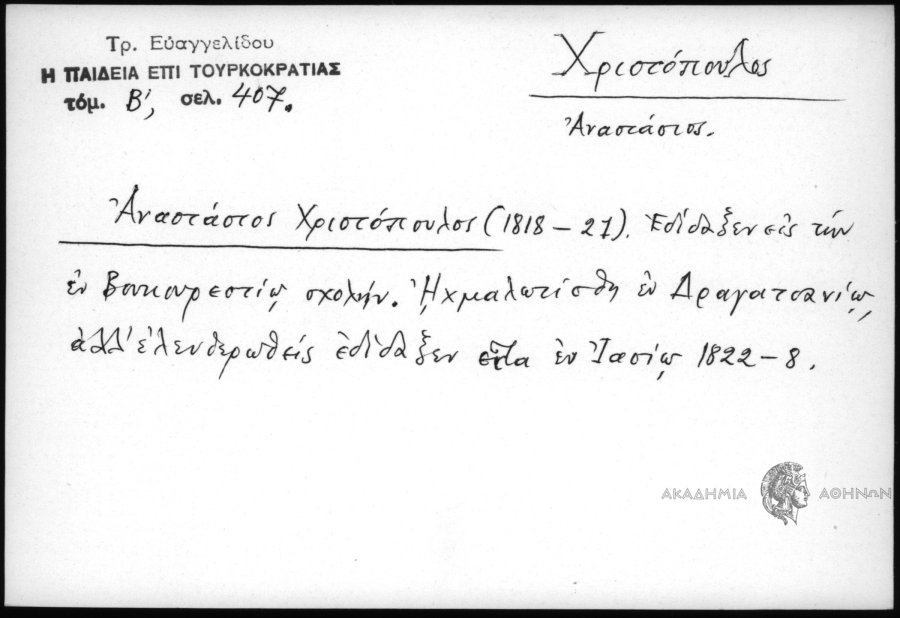 Τρ. Εὐαγγελίδου
Η ΠΑΙΔΕΙΑ ΕΠΙ ΤΟΥΡΚΟΚΡΑΤΙΑΣ
τόμ. Β', σελ. 407.
Χριστόπουλος
Ἀναστάσιος.
Ἀναστάσιος Χριστόπουλος (1818 – 21). Ἐδίδαξεν εἰς τὴν
ἐν Βουκουρεστίῳ σχολήν. ᾘχμαλωτίσθη ἐν Δραγατσανίῳ,
ἀλλ' ἐλευθερωθείς ἐδίδαξεν εἶτα ἐν Ἰασίῳ 1822 – 8.
ΑΚΑΔΗΜΙΑ ΑΘΗΝΩΝ